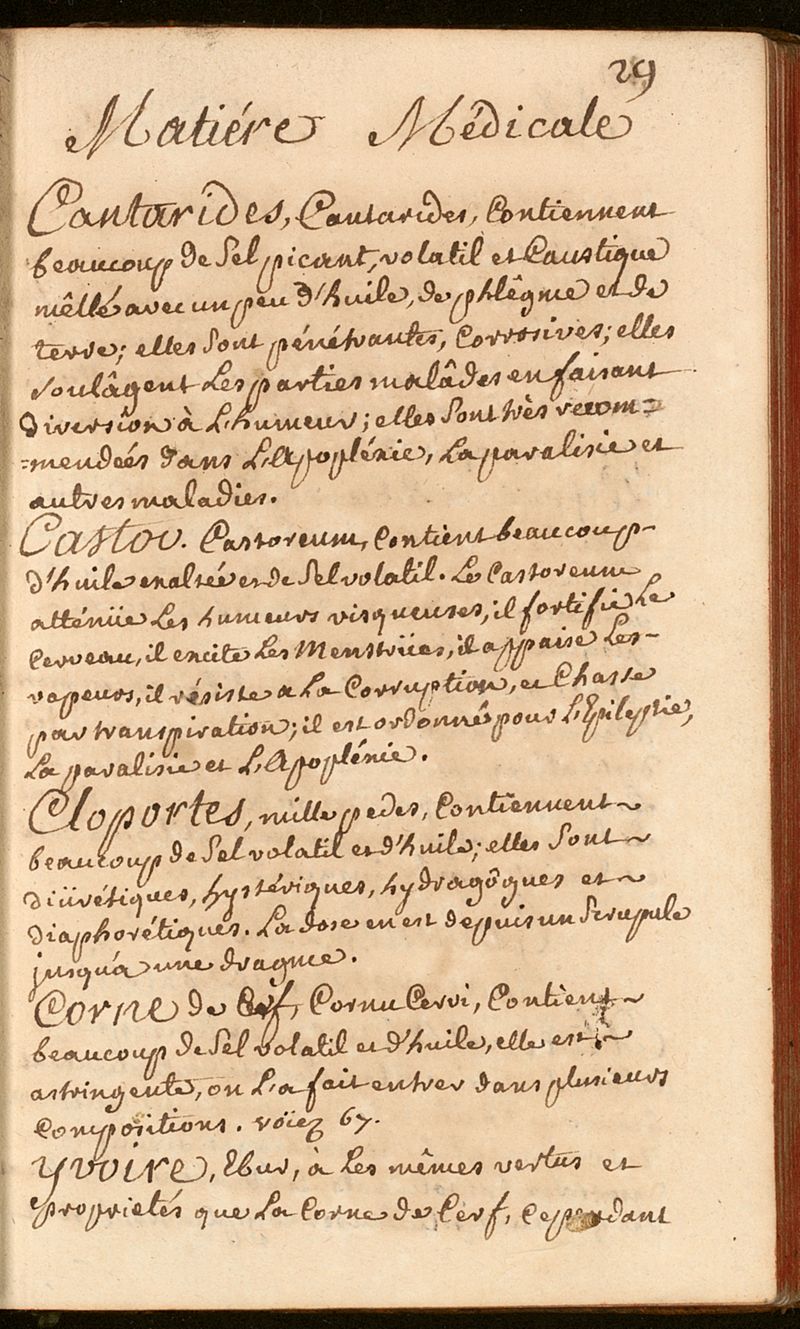 29
Matiére Médicale
Cantarides, Cantarides, Contiennent
beaucoup de Sel picant, volatil et Caustique
mêllé avec un peu d'huile, de phlêgme et de
terre; elles Sont pénétrantes, Corrosives; elles
soulâgent Les parties malâdes en faisant
diversion à L'humeur; elles Sont très recom=
=mendeés dans L'Apopléxie, La paralisie et
autres maladies.
Castor. Castoreum, Contient beaucoup
d'huile exaltée et de Sel volatil. Le Castoreum
atténüe Les humeurs visqueuses, il fortifie Le
Cerveau, il excite Les Menstrües, il appaise Les
vapeurs, il résiste a La Corruption, et Chasse
par transpiration; il est ordonné pour L'Epilepsie,
La paralisie et L'Apopléxie.
Cloportes, millepedes, Contiennent
beaucoup de Sel volatil et d'huile; elles Sont
diürétiques, hystériques, hydragôgues et
diaphorétiques. La dose en est depuis un Scrupule
jusqu'a une dragme.
Corne de Cerf, Cornu Cervi, Contient
beaucoup de Sel volatil et d'huile, elle est
astringente, on L'a fait entrer dans plusieurs
Compositions. voïez 67.
Yvoire, Ebur, à Les mêmes vertus et
proprietés que La Corne de Cerf, Cependant